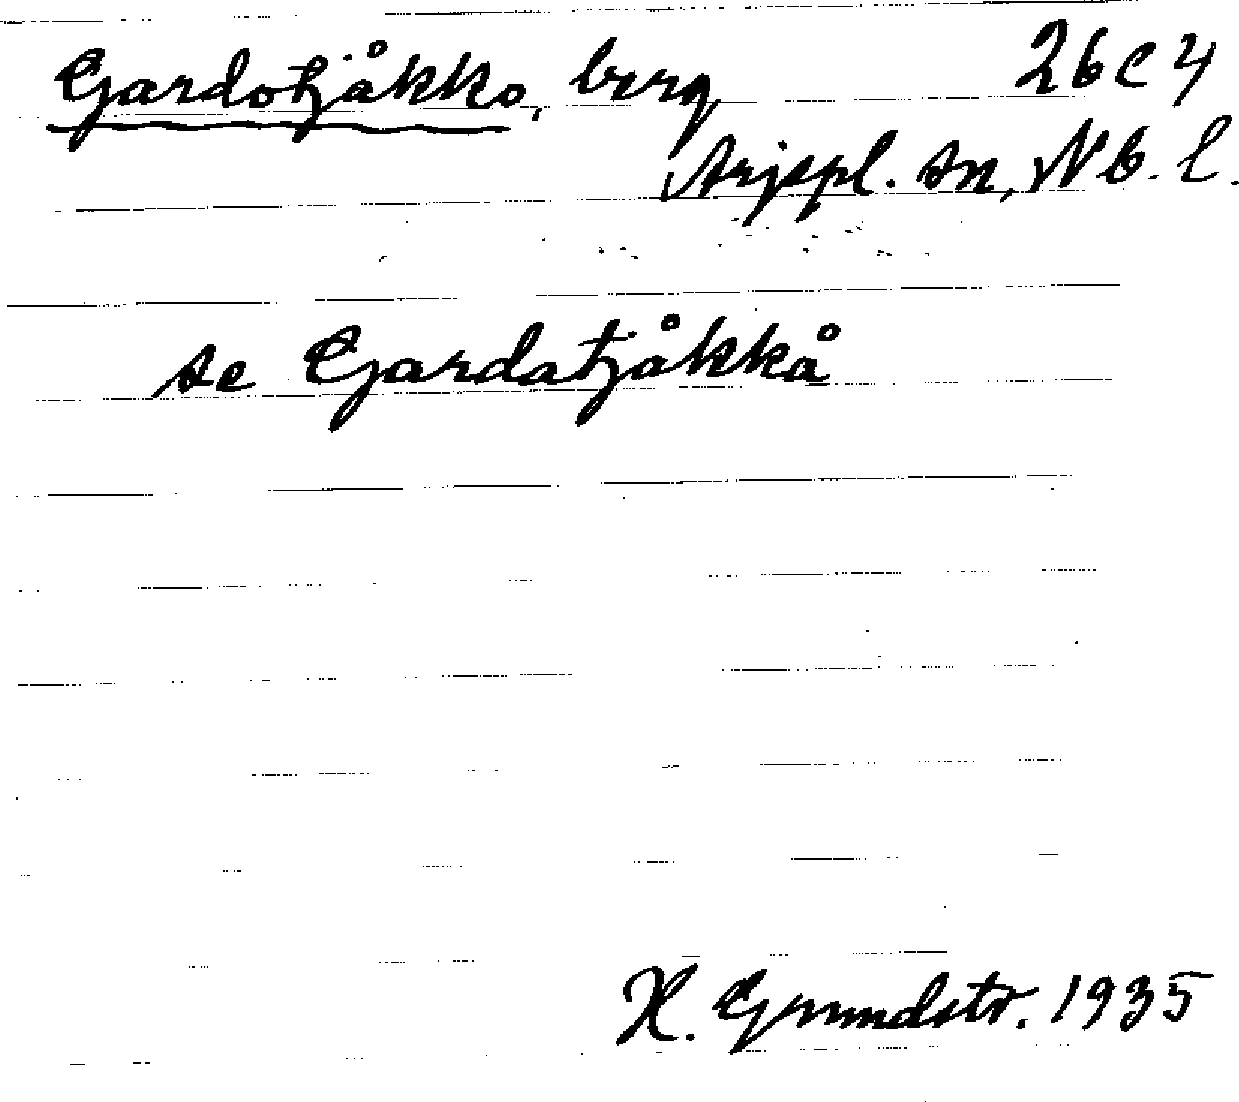 Gardotjåkko, berg 26c4
Arjepl. sn, Nb. l.
se Gardatjåkkå
H. Grundstr. 1935